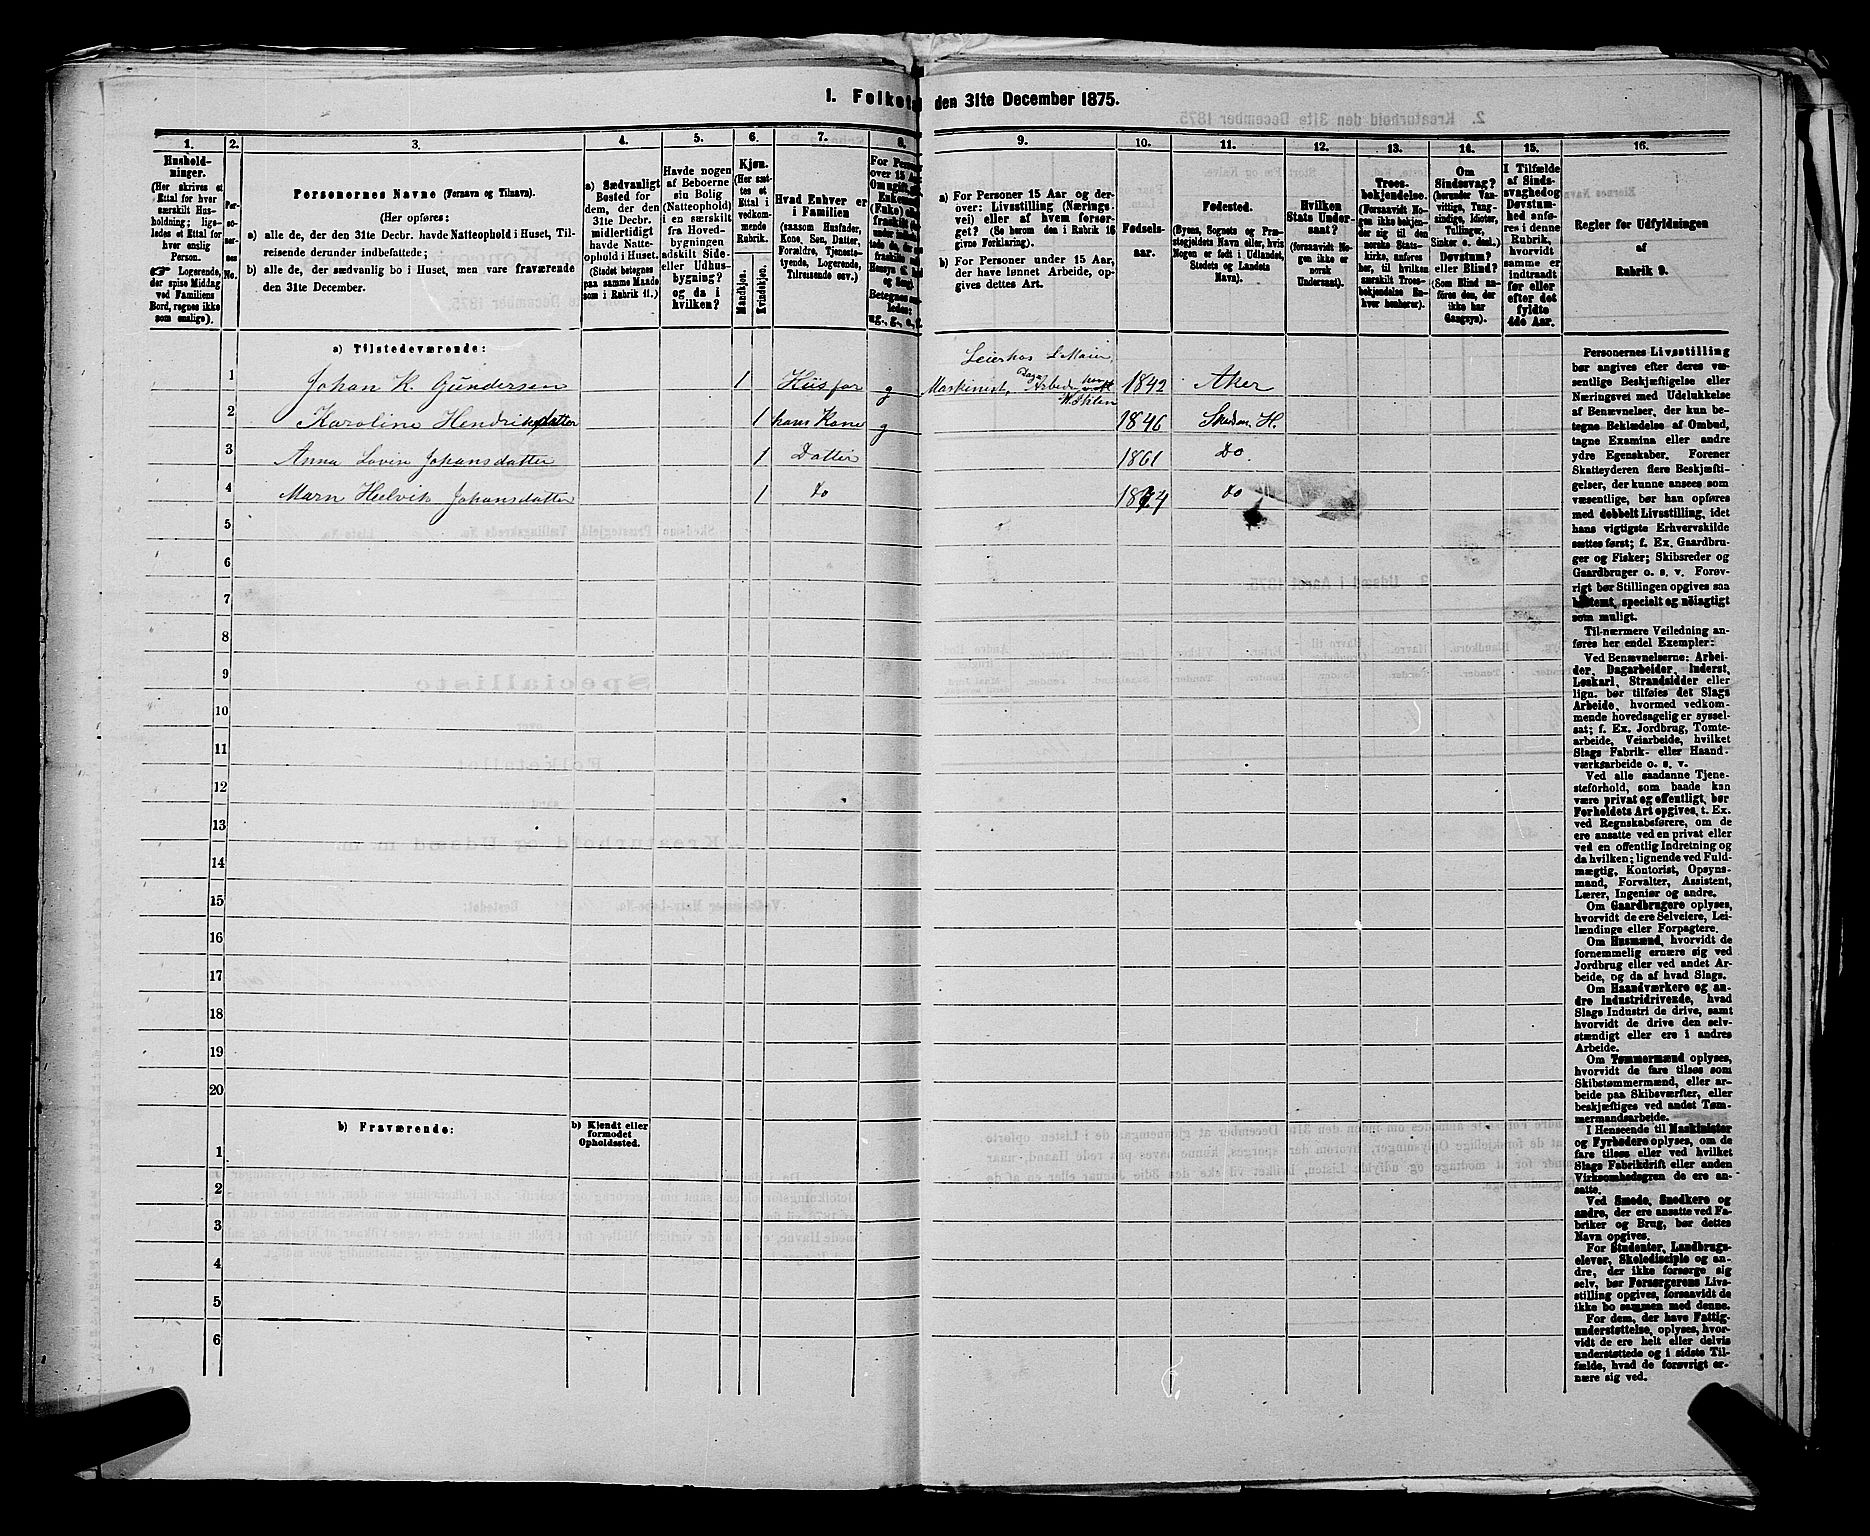 1. Folketal den 31te December 1875.
1.
Hushold-
ninger.
(Her skrives et
Ettal for hver
særskilt Hus-
holdning; lige-
ledes et Ettal for
hver enslig
Person.
☞ Logerende,
der spise Middag
ved Familiens
Bord, regnes ikke
som enslige).
2.
Per-
so-
ner-
nes
No.
3.
Personernes Navne (Fornavn og Tilnavn).
(Her opføres:
a) alle de, der den 31te Decbr. havde Natteophold i Huset, Til-
reisende derunder indbefattede;
b) alle de, der sædvanlig bo i Huset, men vare fraværende
den 31te December.
4.
a) Sædvanligt
Bosted for
dem, der den
31te Decbr.
midlertidigt
havde Natte-
ophold i Huset.
(Stedet betegnes
paa samme Maade
som i Rubrik 11.)
5.
Havde nogen
af Beboerne
sin Bolig
(Natteophold)
i en særskilt
fra Hoved-
bygningen
adskilt Side-
eller Udhus-
bygning?
og da i
hvilken?
6.
Kjøn.
(Her sæt-
tes et
Ettal i
vedkom-
mende
Rubrik.
Mandkjøn.
Kvindekjøn.
7.
Hvad Enhver er
i Familien
(saasom Husfader,
Kone, Søn, Datter,
Forældre, Tjeneste-
tyende, Logerende,
Tilreisende osv.)
8.
9.
a) For Personer 15 Aar og der-
over: Livsstilling (Nærings-
vei) eller af hvem forsør-
get? (Se herom den i Rubrik 16
givne Forklaring).
b) For Personer under 15 Aar,
der have lønnet Arbeide, op-
gives dettes Art.
10.
Fødsels-
aar.
11.
Fødested.
(Byens, Sognets og Præ-
stegjeldets Navn eller, hvis
Nogen er født i Udlandet,
Stedets og Landets
Navn).
12.
Hvilken
Stats Under-
saat?
(forsaavidt No-
gen ikke er
norsk
Undersaat).
13.
Troes-
bekjendelse.
(Forsaavidt No-
gen ikke bekjen-
der sig til den
norske Stats-
kirke, anføres
her, til hvilken
særskilt Troes-
bekjendelse En-
hver henhører).
14.
Om
Sindssvag?
(herunder Van-
vittige, Tung-
sindige, Idioter,
Tullinger,
Sinker o. desl.)
Døvstum?
eller Blind?
(Som Blind an-
føres den, der
ikke har
Gangsyn).
15.
I Tilfælde
af Sinds-
svaghed og
Døvstum-
hed anfø-
res i denne
Rubrik,
hvorvidt
samme er
indtraadt
før eller
efter det
fyldte
4de Aar.
16.
Regler for Udfyldningen
af
Rubrik 9.
a) Tilstedeværende:
1 Johan K. Gundersen 1 Husfar g Maskinist, 1842 Aker
2 Karoline Hendriksdatter 1 hans Kone g 1846
3 Anna Lovin Johansdatter 1 Datter 1861 Do.
4 Johansdatter 1 do do
5
6
7
8
9
10
11
12
13
14
15
16
17
18
19
20
b) Fraværende:
b) Kjendt eller
formodet
Opholdssted.
1
2
3
4
5
6
Personernes Livsstilling
bør angives efter deres væ-
sentlige Beskjæftigelse eller
Næringsvei med Udelukkelse
af Benævnelser, der kun be-
tegne Beklædelse af Ombud,
tagne Examina eller andre
ydre Egenskaber. Forener
Skatteyderen flere Beskjæfti-
gelser, der kunne ansees som
væsentlige, bør han opføres
med dobbelt Livsstilling, idet
hans vigtigste Erhvervskilde
sættes først; f. Ex. Gaardbru-
ger og Fisker; Skibsreder og
Gaardbruger o. s. v. Forøv-
rigt bør Stillingen opgives saa
bestemt, specielt og nøiagtigt
som muligt.
Til nærmere Veiledning an-
føres her endel Exempler:
Ved Benævnelserne: Arbei-
der, Dagarbeider, Inderst,
Løskarl, Strandsidder eller
lign. bør tilføies det Slags
Arbeide, hvormed vedkom-
mende hovedsagelig er syssel-
sat; f. Ex. Jordbrug, Tomte-
arbeide, Veiarbeide, hvilket
Slags Fabrik- eller Haand-
værksarbeide o. s. v.
Ved alle saadanne Tjene-
steforhold, som baade kan
være privat og offentligt, bør
Forholdets Art opgives, t. Ex.
ved Regnskabsførere, om de
ere ansatte ved en privat eller
ved en offentlig Indretning og
da hvilken; lignende ved Fuld-
mægtig, Kontorist, Opsyns-
mand, Forvalter, Assistent,
Lærer, Ingeniør og andre.
Om Gaardbrugere oplyses,
hvorvidt de ere Selveiere, Lei-
lændinge eller Forpagtere.
Om Husmænd, hvorvidt de
fornemmelig ernære sig ved
Jordbrug eller ved andet Ar-
beide, og da af hvad Slags.
Om Haandværkere og an-
dre Industridrivende, hvad
Slags Industri de drive, samt
hvorvidt de drive den selv-
stændigt eller ere i andres
Arbeide.
Om Tømmermænd oplyses,
hvorvidt de fare tilsøs som
Skibstømmermænd, eller ar-
beide paa Skibsværfter, eller
beskjæftiges ved andet Tøm-
mermandsarbeide.
I Henseende til Maskinister
og Fyrbødere oplyses, om de
fare tilsøs eller ved hvilket
Slags Fabrikdrift eller anden
Virksomhedsgren de ere an-
satte.
Ved Smede, Snedkere og
andre, der ere ansatte ved Fa-
briker og Brug, bør dettes
Navn opgives.
For Studenter, Landbrugs-
elever, Skoledisciple og an-
dre, der ikke forsørge sig
selv, bør Forsørgerens Livs-
stilling opgives, forsaavidt de
ikke bo sammen med denne.
For dem, der have Fattig-
understøttelse, oplyses, hvor-
vidt de ere helt eller delvis
understøttede og i sidste Til-
fælde, hvad de forøvrigt er-
nære sig ved.